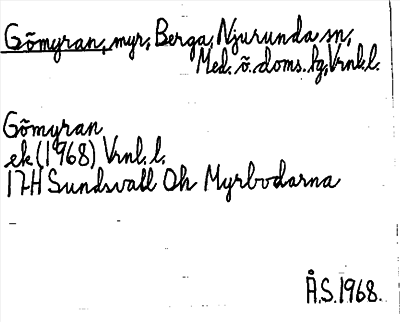 Gömyran, myr, Berga, Njurunda sn,
Med. ö. doms. hg, Vrnl. l.
Gömyran
ek (1968) Vrnl. l.
17H Sundsvall Oh Myrbodarna
Å.S. 1968.